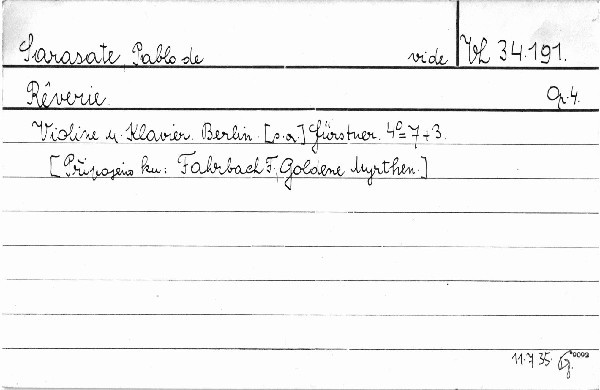 Sarasate Pablo de vide VL 34.191.
Rêverie. Op. 4.
Violine u. Klavier. Berlin. [s.a.] Fürstner. 4° = 7+3.
[Připojeno ku: Fahrbach F., Goldene Myrthen.]
11.7.35.